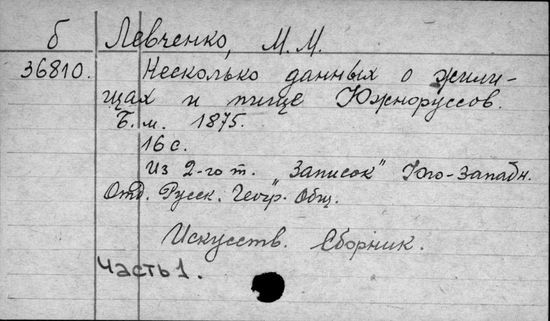 б Левченко, М. М.
36810. Несколько данных о жили-
щах и пище Южноруссов.
Б. м. 1875.
16 с.
Из 2-го т. "Записок" Юго-Западн.
Отд. Русск. Геогр. Общ.
Искусств. Сборник.
Часть 1.